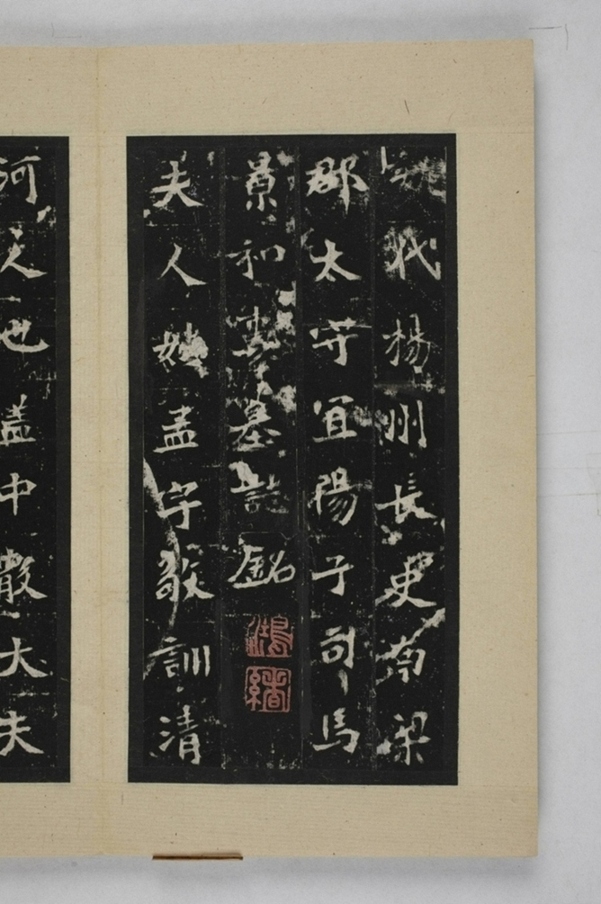 魏代楊州長史南梁
郡太守宜陽子司馬
景和妻墓誌銘
鴻緒
夫人姓孟字敬訓清
河人也盖中散大夫